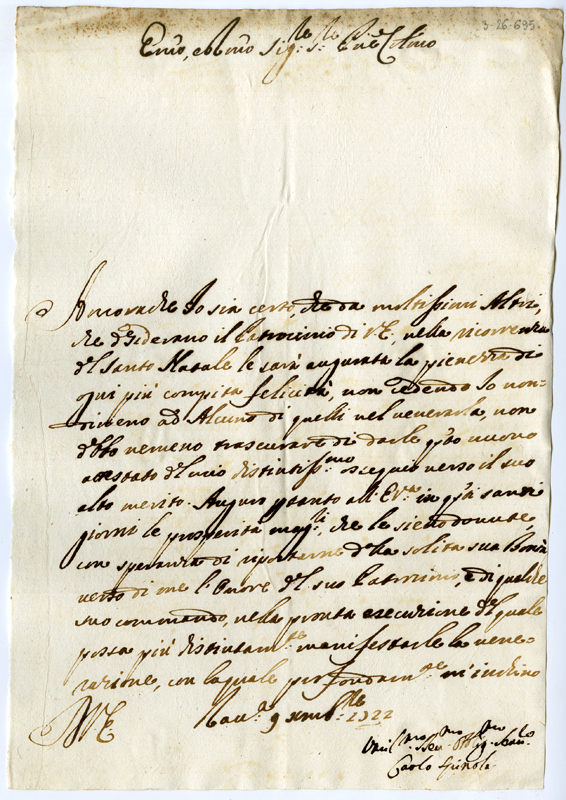 3-26-695.
Emo, e Rmo Sig.re Sig.re Pne Colmo
Ancorche Io sia certo, che da moltissimi Altri,
che desiderano il Patrocinio di V.E, nella ricorrenza
del Santo Natale le sarà augurata la pienezza di
ogni più compita felicità, non cedendo Io non-
dimeno ad Alcuno di quelli nel venerarla, non
debbo nemeno trascurare di darle qsto nuovo
attestato del mio distintissmo ossequio verso il suo
alto merito. Auguro pertanto all' E.V. in qsti santi
giorni le prosperità magri, che le sieno dovute,
con speranza di riportarne dalla solita sua Bontà
verso di me l'Onore del suo Patrocinio, e di qualche
suo commando, nella pronta esecuzione del quale
possa più distintamte manifestarle la vene-
razione, con la quale profondamte m'inchino
V.E. 9 xmbre 1722
Carlo Spinola